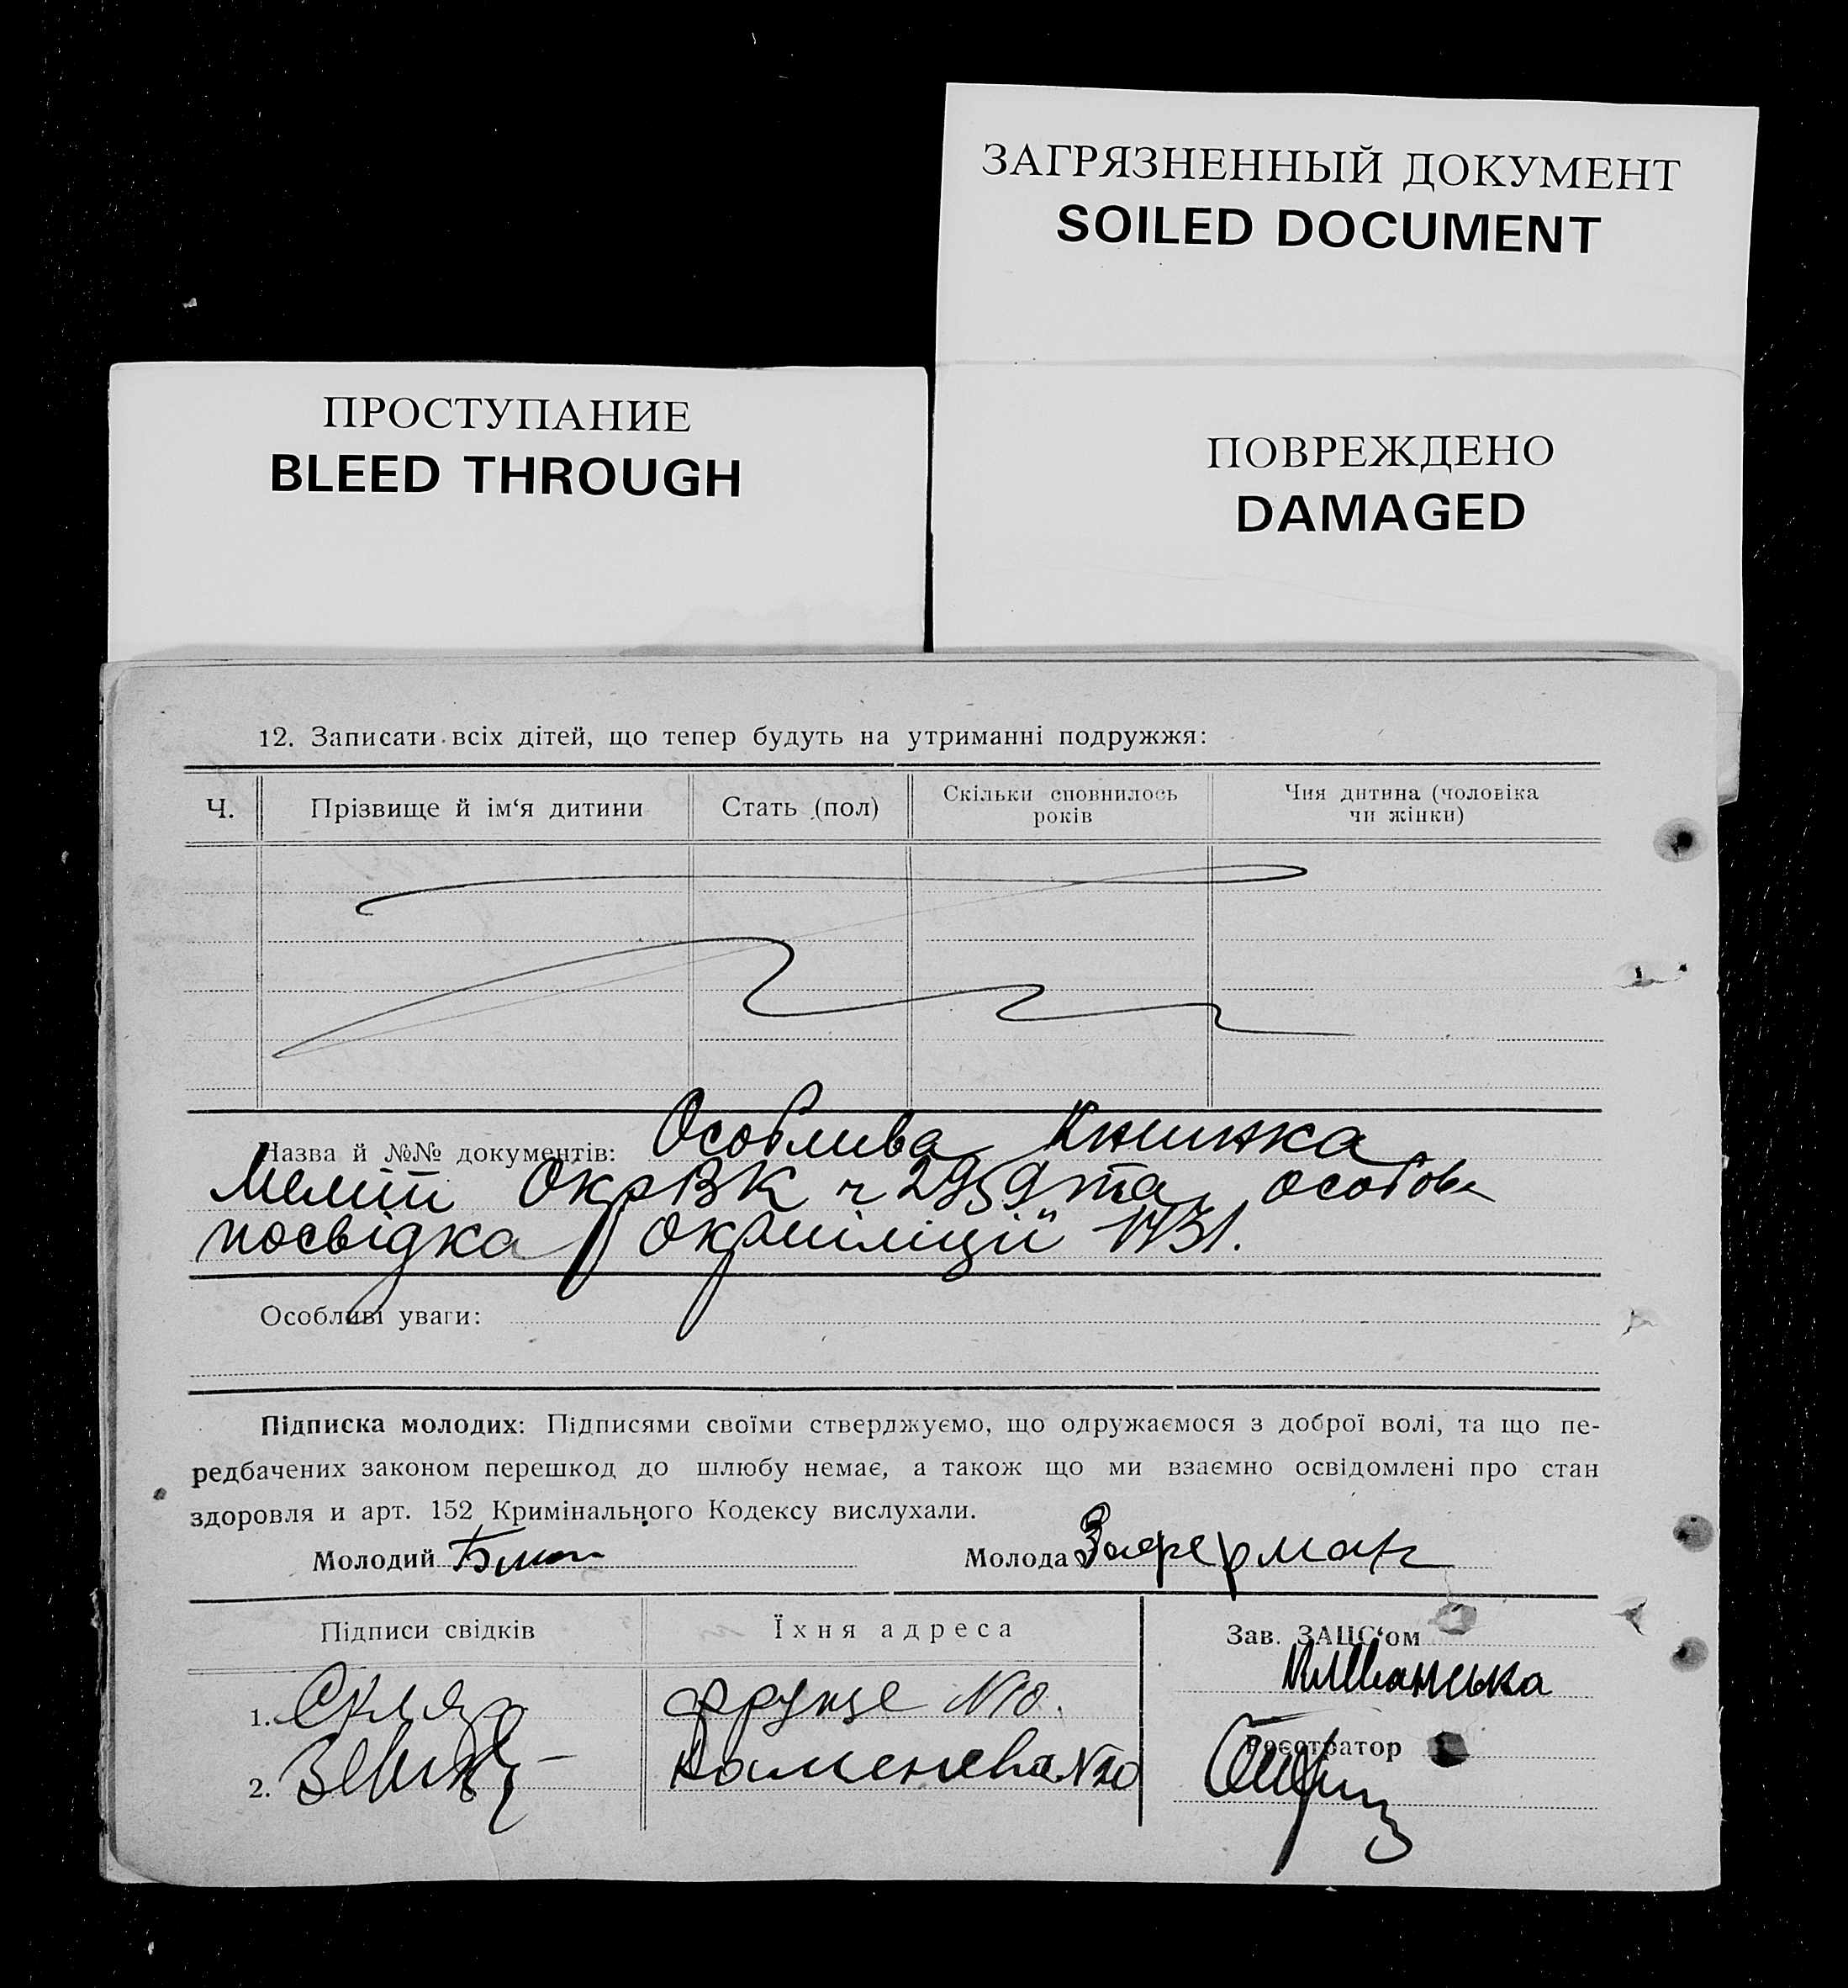 ЗАГРЯЗНЕННЫЙ ДОКУМЕНТ
SOILED DOCUMENT
ПРОСТУПАНИЕ
BLEED THROUGH
ПОВРЕЖДЕНО
DAMAGED
12. Записати всіх дітей, що тепер будуть на утриманні подружжя:
Ч. Прізвище й ім‘я дитини Стать (пол) Скільки сповнилось років Чия дитина (чоловіка чи жінки)
Назва й №№ документів: Особлива Книжка
Меліт ОкрВК ч 2959 та особова
посвідка Окрміліції 1731.
Особливі уваги:
Підписка молодих: Підписями своїми стверджуємо, що одружаємося з доброї волі, та що пе-
редбачених законом перешкод до шлюбу немає, а також що ми взаємно освідомлені про стан
здоровля и арт. 152 Кримінального Кодексу вислухали.
Молодий Молода Заферман
Підписи свідків Їхня адреса Зав. ЗАЦС‘ом
1. Скляр Фрунзе №10.
Реєстратор
2. Каменева №20